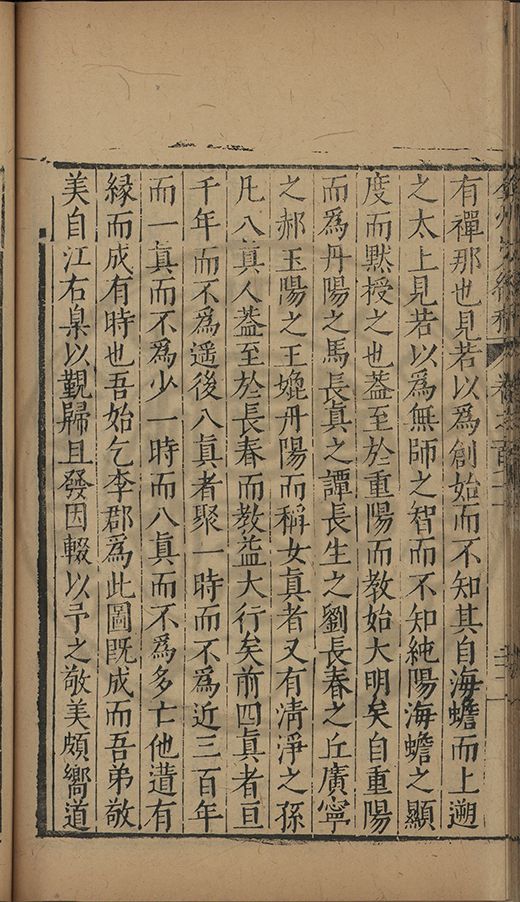 有禪那也見若以爲創始而不知其自海蟾而上遡
之太上見若以爲無師之智而不知純陽海蟾之顯
度而黙授之也葢至於重陽而教始大明矣自重陽
而爲丹陽之馬長眞之譚長生之劉長春之丘廣寧
之郝玉陽之王媲丹陽而稱女眞者又有淸淨之孫
凡八眞人葢至於長春而教益大行矣前四眞者亘
千年而不爲遥後八眞者聚一時而不爲近三百年
而一眞而不爲少一時而八眞而不爲多亡他遺有
縁而成有時也吾始乞李郡爲此圖旣成而吾弟敬
美自江右臬以覲歸且發因輟以予之敬美頗嚮道